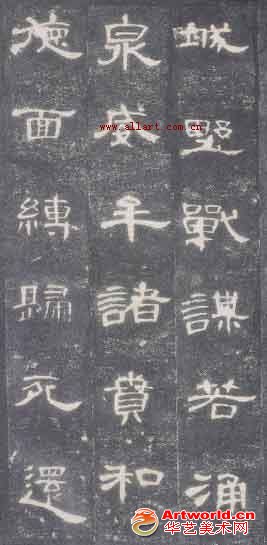 城野戰謀若涌
泉威牟諸賁和
德面縛歸死還
www.allart.com.cn
Artworld.cn
华艺美术网